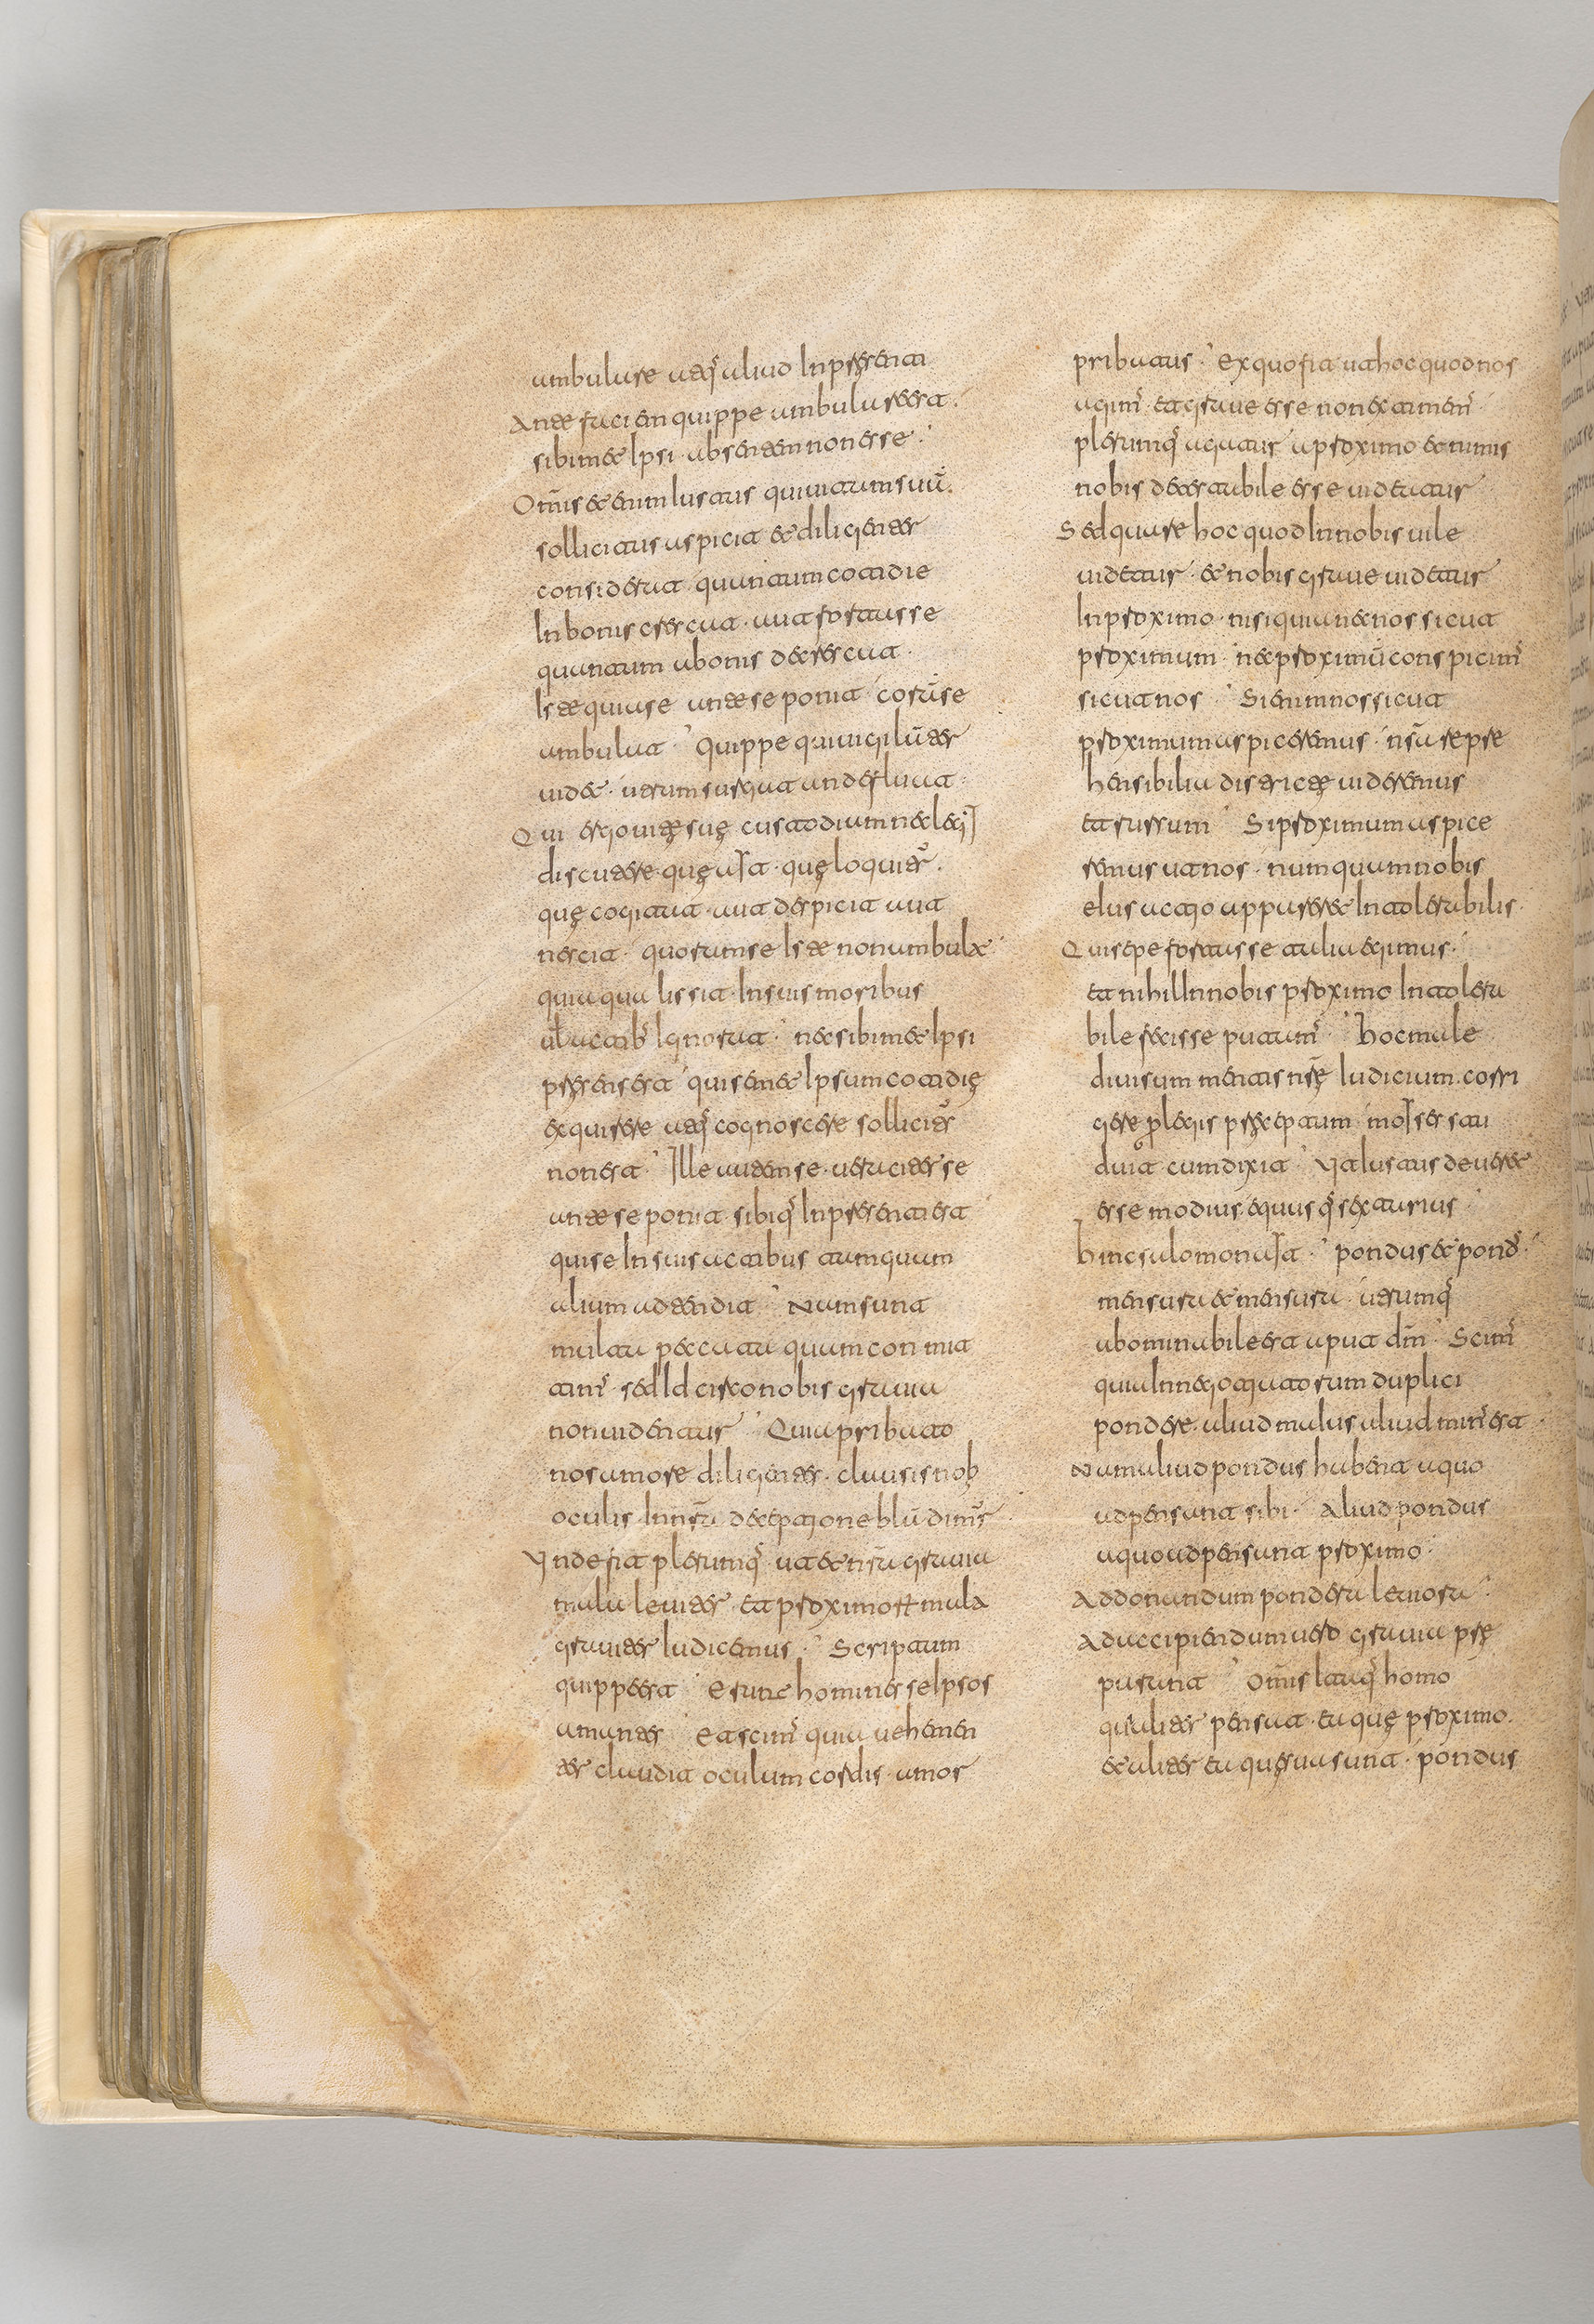 ambulare atq; aliud In pręsenti
Ante faciem quippe ambulare est.
sibimet Ipsi absentem non esse.
Om̄is etenim Iustus qui uitam suā.
sollicitus aspicit et diligenter
considerat quantum cottidie
In bonis crescat. aut fortasse
quantum a bonis decrescat.
Iste quia se ante se ponit corā se
ambulat. Quippe qui uigilāter
uidet. utrum surgat an defluat.
Qui ergo uitę suę custodiam neclegit
discutere. quę agit. quę loquitur.
quę cogitat. aut despicit aut
nescit. quorum se Iste non ambulat.
quia qualis sit. In suis moribus
uł actib; Ignorat. nec sibimet Ipsi
pręsens est. qui semet Ipsum cottidię
exquirere atq; cognoscere sollicitus
non est. Ille autem se ueraciter se
ante se ponit. sibiq; In presenti est
qui se In suis actibus tamquam
alium adtendit. Nam sunt
multa peccata quam committ
tim; sed Idcirco nobis grauia
non uidentur. Quia pribato
nos amore diligentes. clausis nob
oculis. In nr̄a deceptione blādimur
Vnde fit plerumq; ut et nr̄a grauia
mala leuiter. et proximorum mala
grauiter Iudicemus. Scriptum
quippe est Erunt homines se Ipsos
amantes et scim; quia uehemen
ter claudit oculum cordis. amor
pribatus. Ex quo fit ut hoc quod nos
agim; et graue esse non extimem;
plerumq; agatur a proximo et nimis
nobis detestabile esse uideatur
Sed quare hoc quod In nobis uile
uidetur. et nobis graue uidetur
In proximo. nisi quia nec nos sicut
proximum. nec proximū conspicim;
sicut nos. Si enim nos sicut
proximum aspiceremus. nr̄a repre
hensibilia districtę uideremus
et rursum Si proximum aspice
remus ut nos. numquam nobis
eIus actio appareret Intolerabilis.
Qui sepe fortasse talia egimus.
et nihil In nobis proximo Intolera
bile fecisse putam; Hoc male
diuisum mentis nr̄ę Iudicium. corri
gere p̱ legis pręceptum moIses stu
duit cum dixit Vt Iustus deueret
esse modius. equusq; sextarius.
Hinc salomon ait. pondus et pond;
mensura et mensura. utrumq;
abominabile est aput dm̄ Scim;
quia In negotiatorum duplici
pondere. aliud maius aliud min; est
Nam aliud pondus habent a quo
ad pensant sibi. Aliud pondus
a quo ad pensant proximo.
Ad donandum pondera leuiora.
Ad accipiendum uero grauia prę
parant Om̄is Itaq; homo
qui aliter pensat. ea quę proximo.
et aliter ea quę sua sunt. pondus